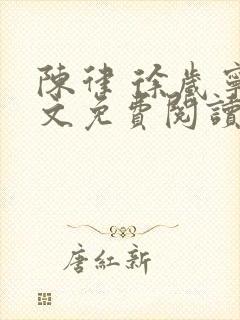 陳律 徐歲寧
文免費閱讀
唐紅新